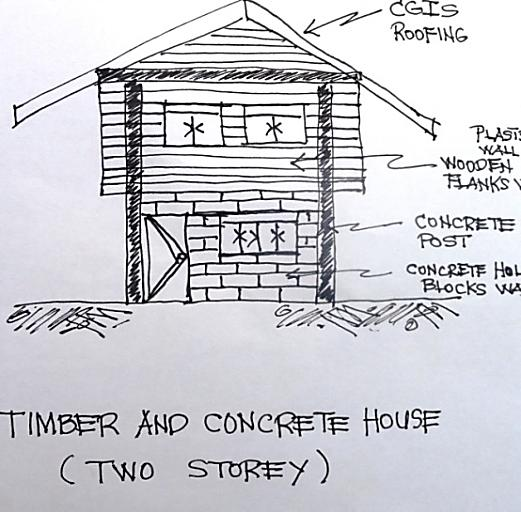 CGIS
ROOFING
WALL
WOODEN
CONCRETE
POST
CONCRETE
BLOCKS
TIMBER AND CONCRETE HOUSE
(TWO STOREY)